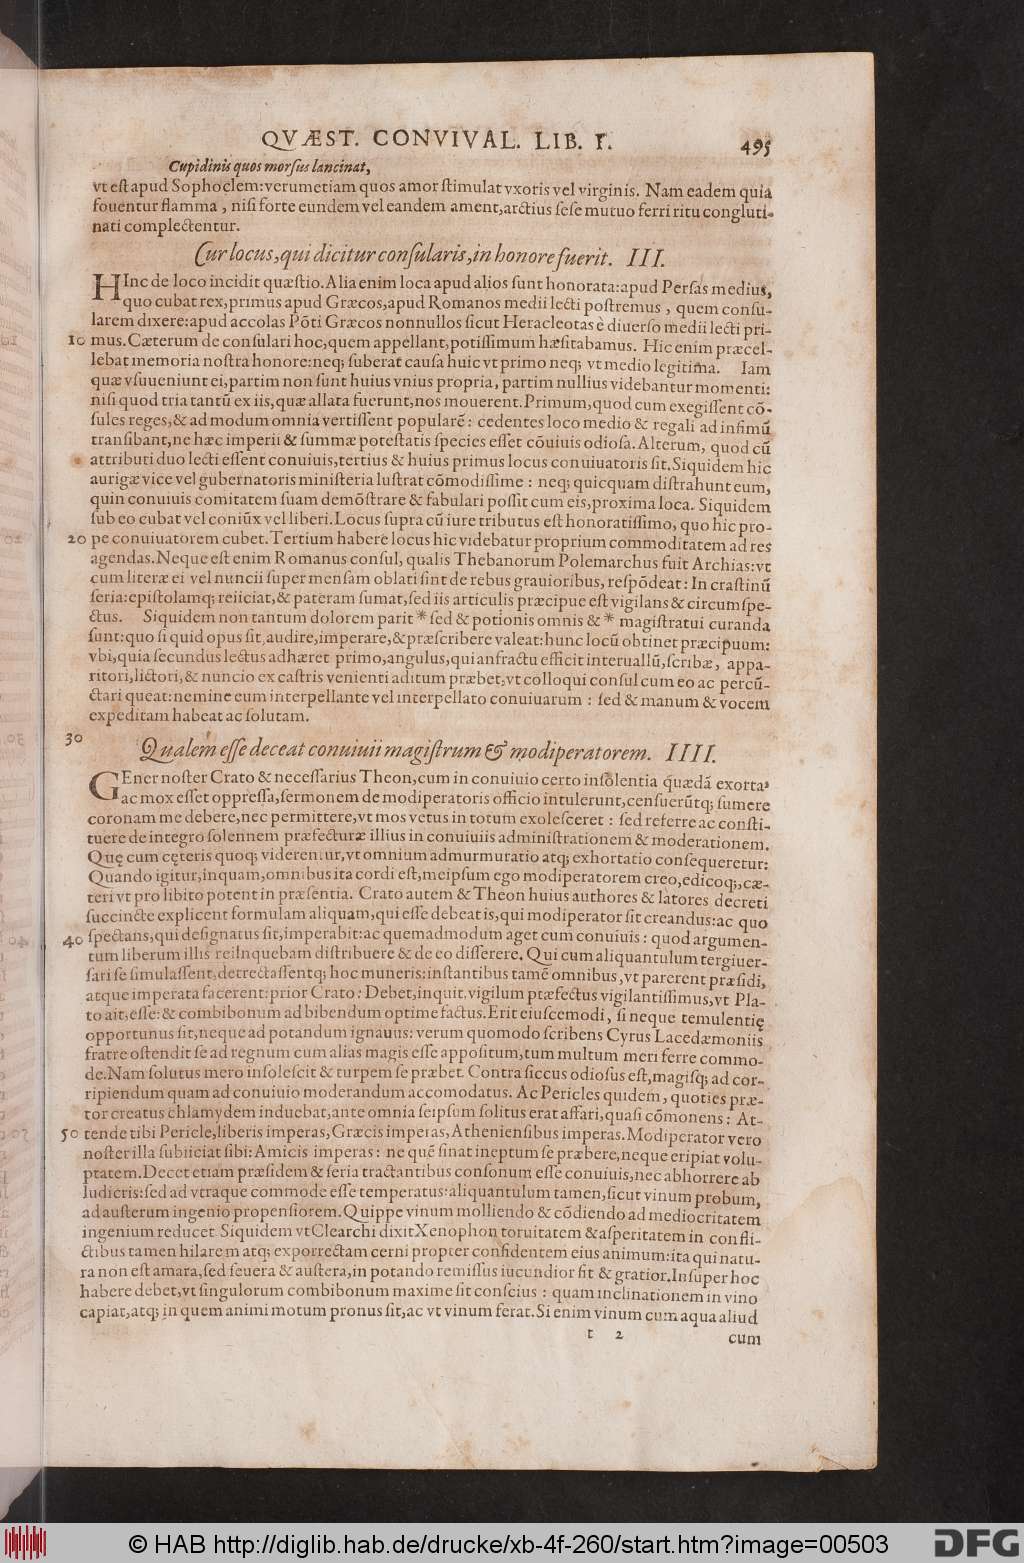 QVÆST. CONVIVAL. LIB. I. 495
Cupidinis quos morsus lancinat,
vt est apud Sophoclem: verumetiam quos amor stimulat vxoris vel virginis. Nam eadem quia
fouentur flamma, nisi forte eundem vel eandem ament, arctius sese mutuo ferri ritu congluti-
nati complectentur.
Cur locus, qui dicitur consularis, in honore fuerit. III.
HInc de loco incidit quæstio. Alia enim loca apud alios sunt honorata: apud Persas medius,
quo cubat rex, primus apud Græcos, apud Romanos medii lecti postremus, quem consu-
larem dixere: apud accolas Põti Græcos nonnullos sicut Heracleotas è diuerso medii lecti pri-
10 mus. Cæterum de consulari hoc, quem appellant, potissimum hæsitabamus. Hic enim præcel-
lebat memoria nostra honore: neq; suberat causa huic vt primo neq; vt medio legitima. Iam
quæ vsuueniunt ei, partim non sunt huius vnius propria, partim nullius videbantur momenti:
nisi quod tria tantũ ex iis, quæ allata fuerunt, nos mouerent. Primum, quod cum exegissent cõ-
sules reges, & ad modum omnia vertissent popularẽ: cedentes loco medio & regali ad infimũ
transibant, ne hæc imperii & summæ potestatis species esset cõuiuis odiosa. Alterum, quod cũ
attributi duo lecti essent conuiuis, tertius & huius primus locus conuiuatoris sit. Siquidem hic
aurigæ vice vel gubernatoris ministeria lustrat cõmodissime: neq; quicquam distrahunt eum,
quin conuiuis comitatem suam demõstrare & fabulari possit cum eis, proxima loca. Siquidem
sub eo cubat vel coniũx vel liberi. Locus supra cũ iure tributus est honoratissimo, quo hic pro-
20 pe conuiuatorem cubet. Tertium habere locus hic videbatur proprium commoditatem ad res
agendas. Neque est enim Romanus consul, qualis Thebanorum Polemarchus fuit Archias: vt
cum literæ ei vel nuncii super mensam oblati sint de rebus grauioribus, respõdeat: In crastinũ
seria: epistolamq; reiiciat, & pateram sumat, sed iis articulis præcipue est vigilans & circumspe-
ctus. Siquidem non tantum dolorem parit * sed & potionis omnis & * magistratui curanda
sunt: quo si quid opus sit, audire, imperare, & præscribere valeat: hunc locũ obtinet præcipuum:
vbi, quia secundus lectus adhæret primo, angulus, qui anfractu efficit interuallũ, scribæ, appa-
ritori, lictori, & nuncio ex castris venienti aditum præbet, vt colloqui consul cum eo ac percũ-
ctari queat: nemine eum interpellante vel interpellato conuiuarum: sed & manum & vocem
expeditam habeat ac solutam.
30 Qualem esse deceat conuiuii magistrum & modiperatorem. IIII.
GEner noster Crato & necessarius Theon, cum in conuiuio certo insolentia quædã exorta,
ac mox esset oppressa, sermonem de modiperatoris officio intulerunt, censuerũtq; sumere
coronam me debere, nec permittere, vt mos vetus in totum exolesceret: sed referre ac consti-
tuere de integro solennem præfecturæ illius in conuiuiis administrationem & moderationem.
Quę cum cęteris quoq; viderentur, vt omnium admurmuratio atq; exhortatio consequeretur:
Quando igitur, inquam, omnibus ita cordi est, meipsum ego modiperatorem creo, edicoq;, cæ-
teri vt pro libito potent in præsentia. Crato autem & Theon huius authores & latores decreti
succincte explicent formulam aliquam, qui esse debeat is, qui modiperator sit creandus: ac quo
40 spectans, qui designatus sit, imperabit: ac quemadmodum aget cum conuiuis: quod argumen-
tum liberum illis reilnquebam distribuere & de eo disserere. Qui cum aliquantulum tergiuer-
sari se simulassent, detrectassentq; hoc muneris: instantibus tamẽ omnibus, vt parerent præsidi,
atque imperata facerent: prior Crato: Debet, inquit, vigilum præfectus vigilantissimus, vt Pla-
to ait, esse: & combibonum ad bibendum optime factus. Erit eiuscemodi, si neque temulentię
opportunus sit, neque ad potandum ignauus: verum quomodo scribens Cyrus Lacedæmoniis
fratre ostendit se ad regnum cum alias magis esse appositum, tum multum meri ferre commo-
de. Nam solutus mero insolescit & turpem se præbet. Contra siccus odiosus est, magisq; ad cor-
ripiendum quam ad conuiuio moderandum accomodatus. Ac Pericles quidem, quoties præ-
tor creatus chlamydem induebat, ante omnia seipsum solitus erat affari, quasi cõmonens: At-
50 tende tibi Pericle, liberis imperas, Græcis imperas, Atheniensibus imperas. Modiperator vero
noster illa subiiciat sibi: Amicis imperas: ne quẽ sinat ineptum se præbere, neque eripiat volu-
ptatem. Decet etiam præsidem & seria tractantibus consonum esse conuiuis, nec abhorrere ab
ludicris: sed ad vtraque commode esse temperatus: aliquantulum tamen, sicut vinum probum,
ad austerum ingenio propensiorem. Quippe vinum molliendo & cõdiendo ad mediocritatem
ingenium reducet. Siquidem vt Clearchi dixit Xenophon toruitatem & asperitatem in confli-
ctibus tamen hilarem atq; exporrectam cerni propter confidentem eius animum: ita qui natu-
ra non est amara, sed seuera & austera, in potando remissus iucundior fit & gratior. Insuper hoc
habere debet, vt singulorum combibonum maxime sit conscius: quam inclinationem in vino
capiat, atq; in quem animi motum pronus sit, ac vt vinum ferat. Si enim vinum cum aqua aliud
t 2 cum
© HAB http://diglib.hab.de/drucke/xb-4f-260/start.htm?image=00503
DFG